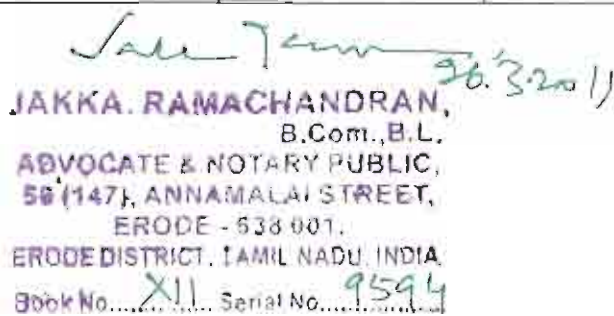 26.3.2011
JAKKA. RAMACHANDRAN,
B.Com.,B.L.
ADVOCATE & NOTARY PUBLIC,
(147), ANNAMALAI STREET,
ERODE - 638 001.
ERODE DISTRICT. TAMIL NADU. INDIA
Book No......XII.. Serial No...9594